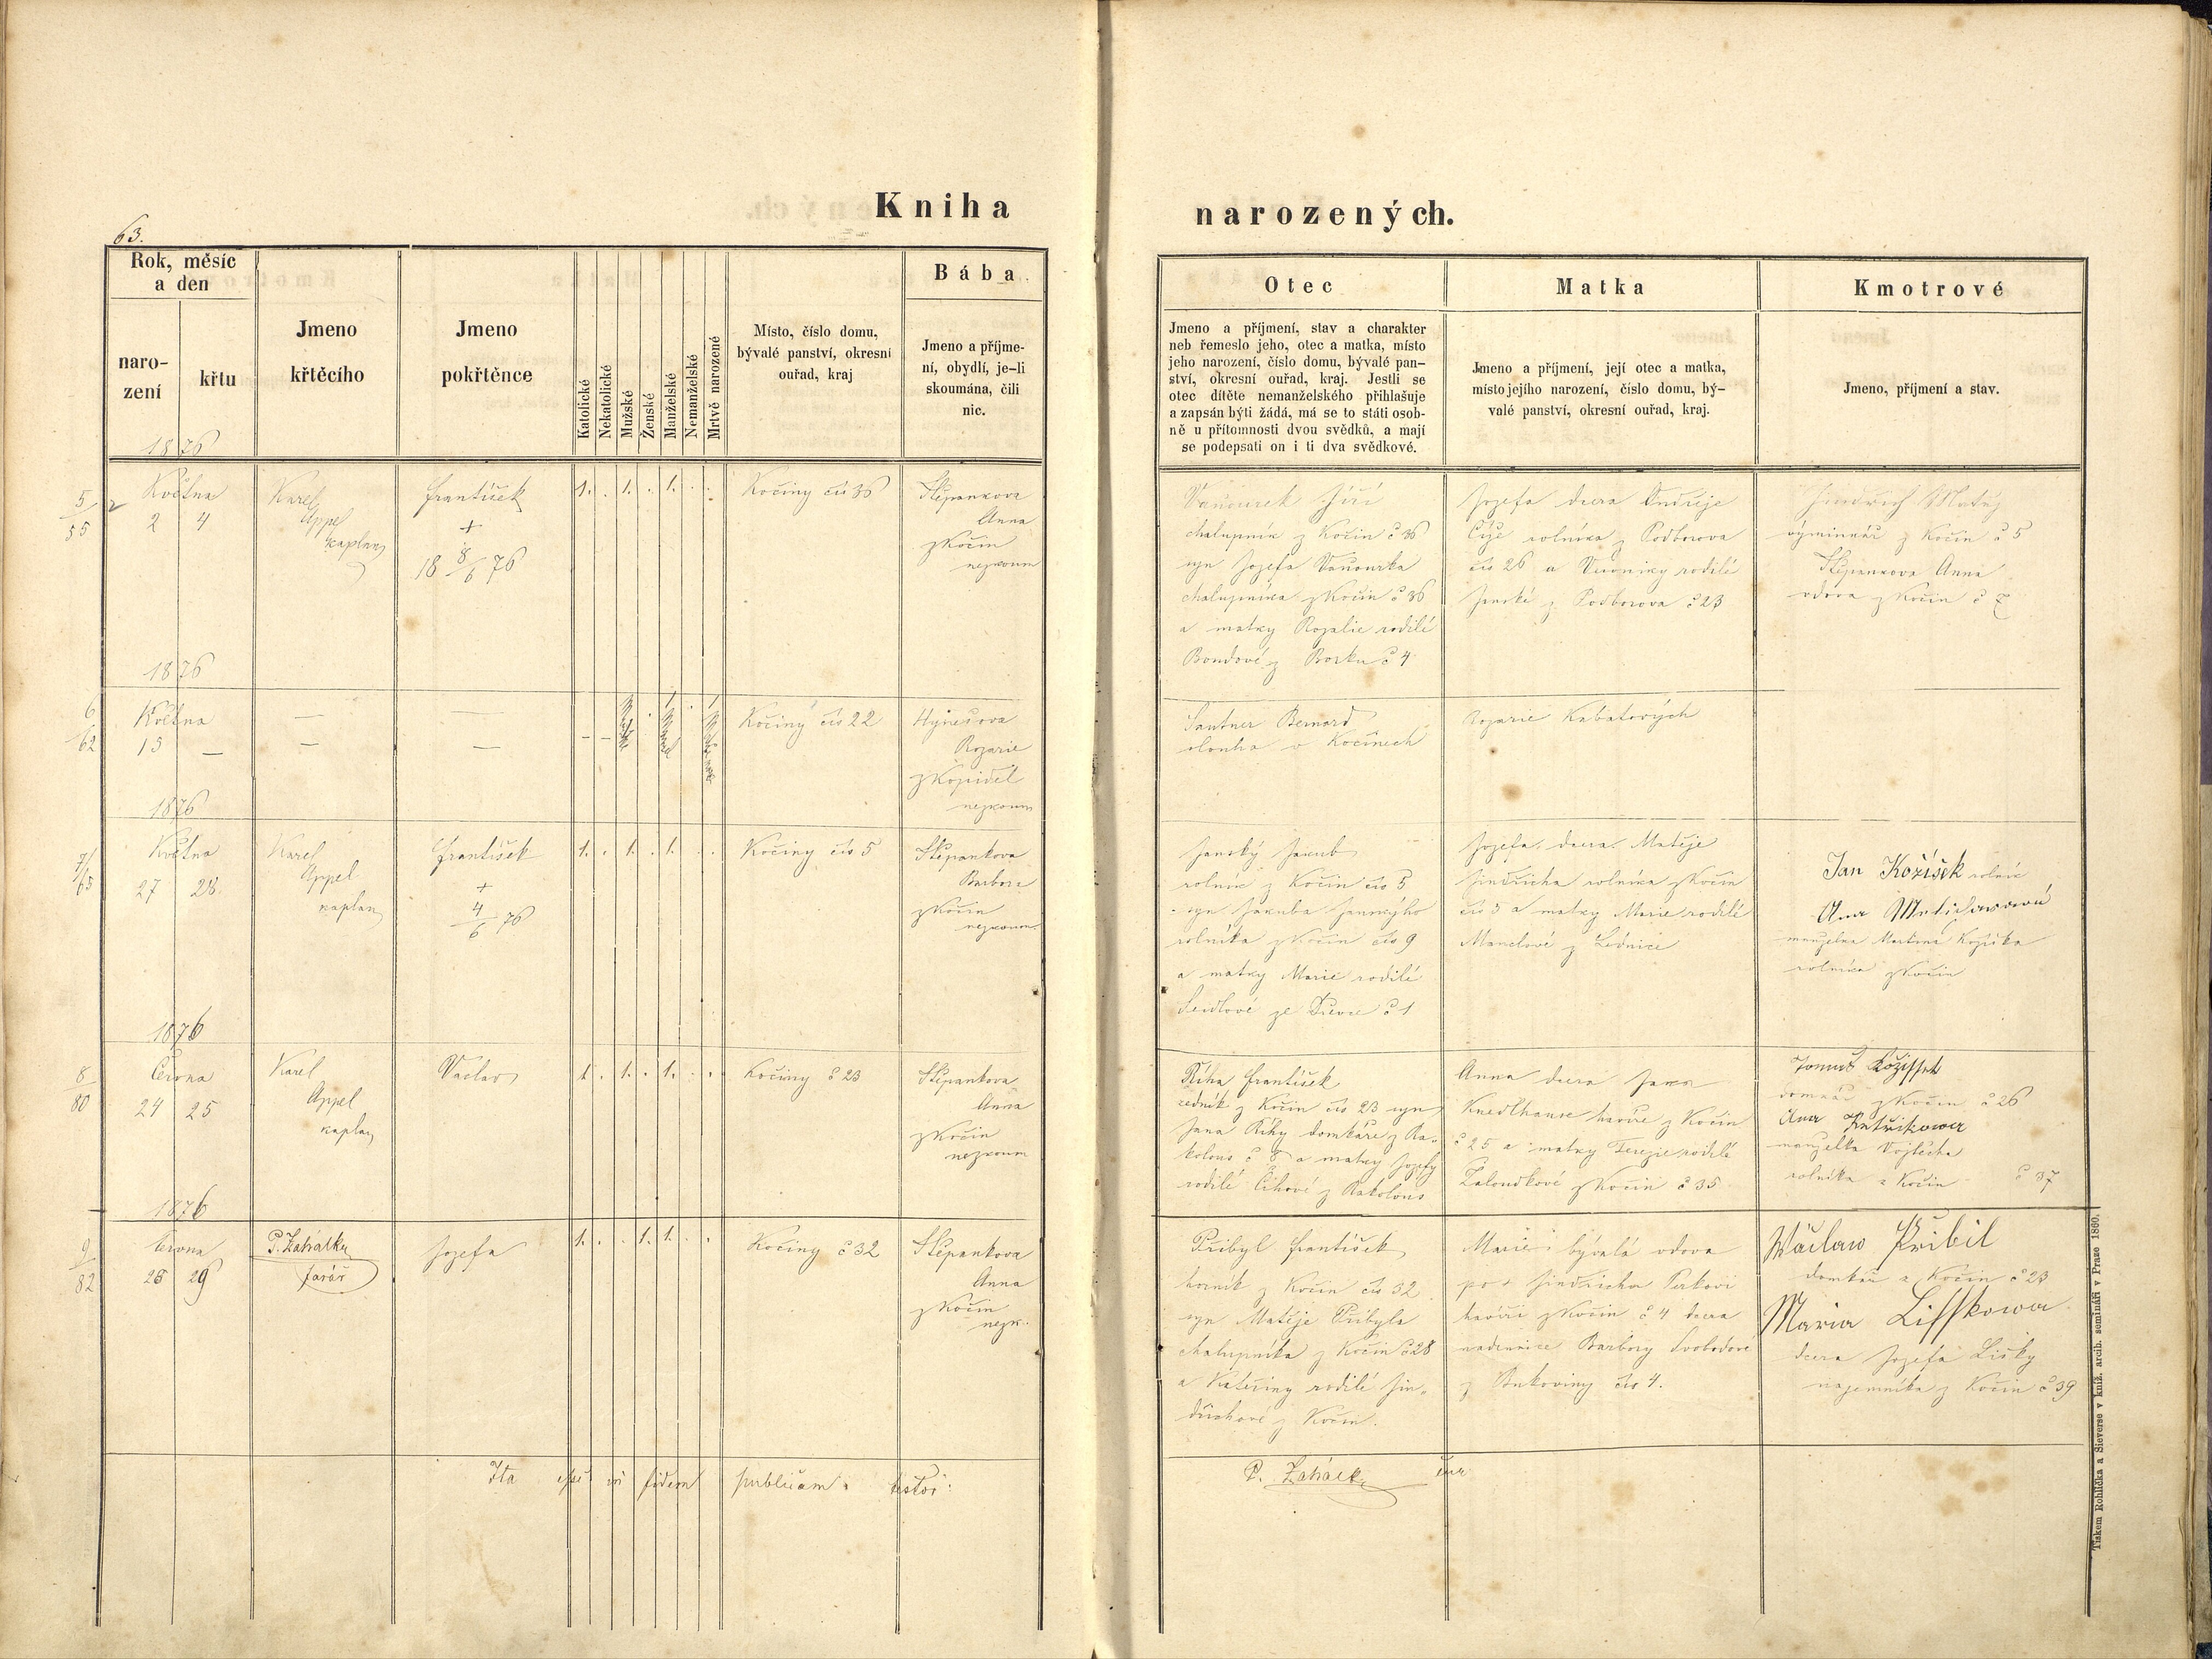 Kniha
narozených.
63.
Rok, měsíc
a den
naro-
zení
křtu
1876
Jmeno
křtěcího
Jmeno
pokřtěnce
Katolické
Nekatolické
Mužské
Ženské
Manželské
Nemanželské
Mrtvě narozené
Místo, číslo domu,
bývalé panství, okresní
ouřad, kraj
Bába
Jmeno a příjme-
ní, obydlí, je-li
skoumána, čili
nic.
Otec
Jmeno a příjmení, stav a charakter
neb řemeslo jeho, otec a matka, místo
jeho narození, číslo domu, bývalé pan-
ství, okresní ouřad, kraj. Jestli se
otec dítěte nemanželského přihlašuje
a zapsán býti žádá, má se to státi osob-
ně u přítomnosti dvou svědků, a mají
se podepsati on i ti dva svědkové.
Matka
Jmeno a příjmení, její otec a matka,
místo jejího narození, číslo domu, bý-
valé panství, okresní ouřad, kraj.
Kmotrové
Jmeno, příjmení a stav.
5/55
Května
2 4
Karel
Appel
kaplan
František
+
18 8/6 76
1. . 1. . 1. . .
Kočiny čís 36
Štěpankova
Anna
z Kočin
nezkoum
Vaňourek Jiří
chalupník z Kočin č 36
syn Jozefa Vaňourka
chalupníka z Kočin č 36
a matky Rozalie rodilé
Bondové z Borku č 4
Jozefa dcera Ondřeje
Číže rolníka z Podborova
čís 26 a Veroniky rodilé
Janské z Podborova č 23
Jindřich Matěj
výminkář z Kočin č 5
Štěpankova Anna
vdova z Kočin č
1876
6/62
Května
15 —
Kočiny čís 22
Hynešova
Rozarie
z Kopidel
nezkoum
Santner Bernard
slouha v Kočinech
Rozarie Kabátových
1876
7/65
Května
27 28.
Karel
Appel
kaplan
František
+
4/6 76
1. . 1. . 1. . .
Kočiny čís 5
Štěpankova
Barbora
z Kočin
nezkoum.
Janský Jakub
rolník z Kočin čís 5
syn Jakuba Janského
rolníka z Kočin čís 9
a matky Marie rodilé
Seidlové ze č 1
Jozefa dcera Matěje
Jindřicha rolníka z Kočin
čís 5 a matky Marie rodilé
Manclové z Lednice
Jan Kožíšek rolník
Ana
manželka Martina Kožíška
rolníka z Kočin
1876
8/80
Června
24 25
Karel
Appel
kaplan
Václav
1. . 1. . 1. . .
Kočiny č 23
Štěpankova
Anna
z Kočin
nezkoum
Říha František
zedník z Kočin čís 23 syn
Jana Říhy domkáře z Ra-
kolous č 8 a matky Jozefy
rodilé Číhové z Rakolous
Anna dcera Jana
Knedlhanse havíře z Kočin
č 25 a matky Terezie rodilé
Žaloudkové z Kočin č 35
Tomaš Kožissek
domkář z Kočin č 26
Ana
manželka Vojtěcha
rolníka z Kočin č 37
1876
9/82
Června
28 29
P. Zahálka
farář
Jozefa
1. . . 1. 1. . .
Kočiny č 32
Štěpankova
Anna
z Kočin
nezk.
Přibyl František
horník z Kočin čís 32
syn Matěje Přibyla
chalupníka z Kočin č 28
a Kateřiny rodilé Jin-
dřichové z Kočin.
Marie bývalá vdova
po + Jindřichu Perkovi
havíři z Kočin č 4 dcera
nádennice Barbory Svobodové
z Bukoviny čís 4.
Wáclaw Přibil
domkář z Kočin č 23
Maria Lisskowa
dcera Jozefa Lišky
najemníka z Kočin č 39
Ita esse in fidem publicam testor:
P. Zahálka
Tiskem Rohlíčka a Sieverse v kníž. arcib. semináři v Praze 1860.